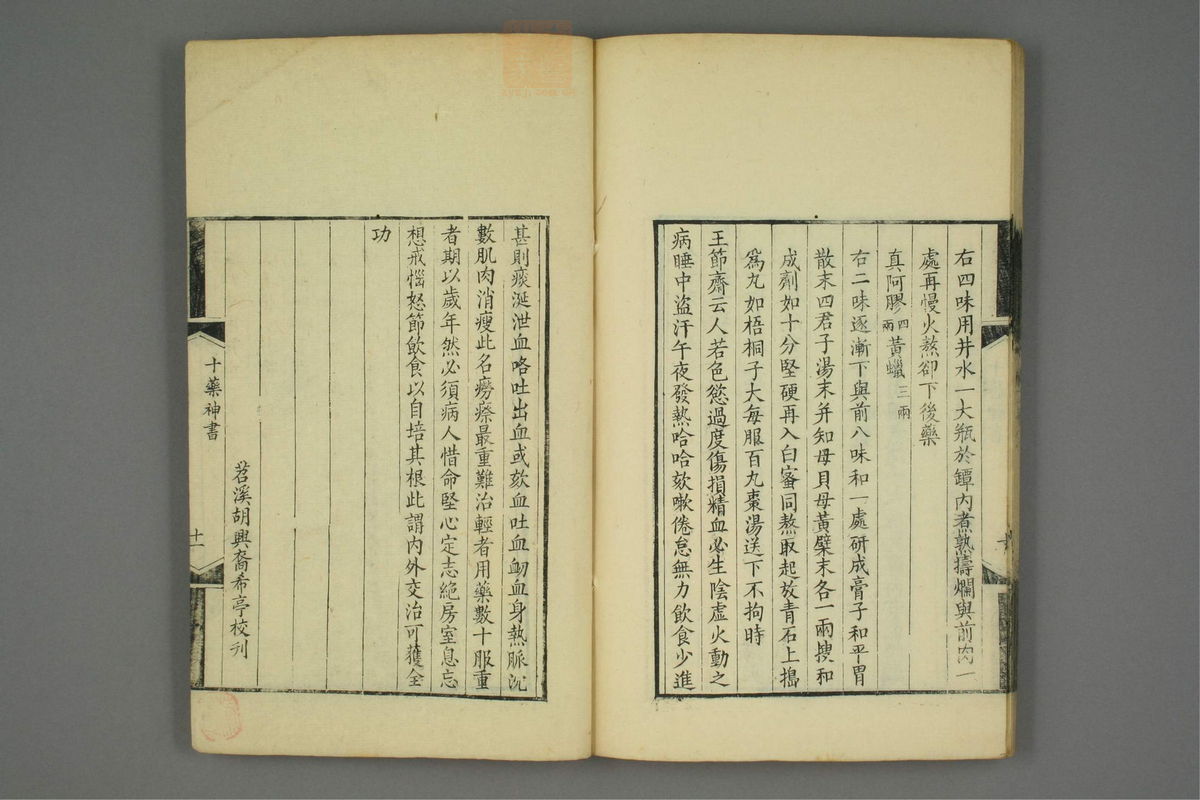 右四味用井水一大瓶於罈内煮熟擣爛與前内一
處再慢火熬卻下後藥
真阿膠四兩黃蠟三兩
右二味逐漸下與前八味和一處研成膏子和平胃
散末四君子湯末并知母貝母黃檗末各一兩搜和
成劑如十分堅硬再入白蜜同熬取起放青石上搗
爲丸如梧桐子大每服百丸棗湯送下不拘時
王節齋云人若色慾過度傷損精血必生陰虛火動之
病睡中盜汗午夜發熱哈哈欬嗽倦怠無力飲食少進
甚則痰涎泄血咯吐出血或欬血吐血衂血身熱脈沉
數肌肉消瘦此名癆瘵最重難治輕者用藥數十服重
者期以歲年然必須病人惜命堅心定志絕房室息忘
想戒惱怒節飲食以自培其根此謂内外交治可獲全
功
苕溪胡興裔希亭校刊
十藥神書
十一